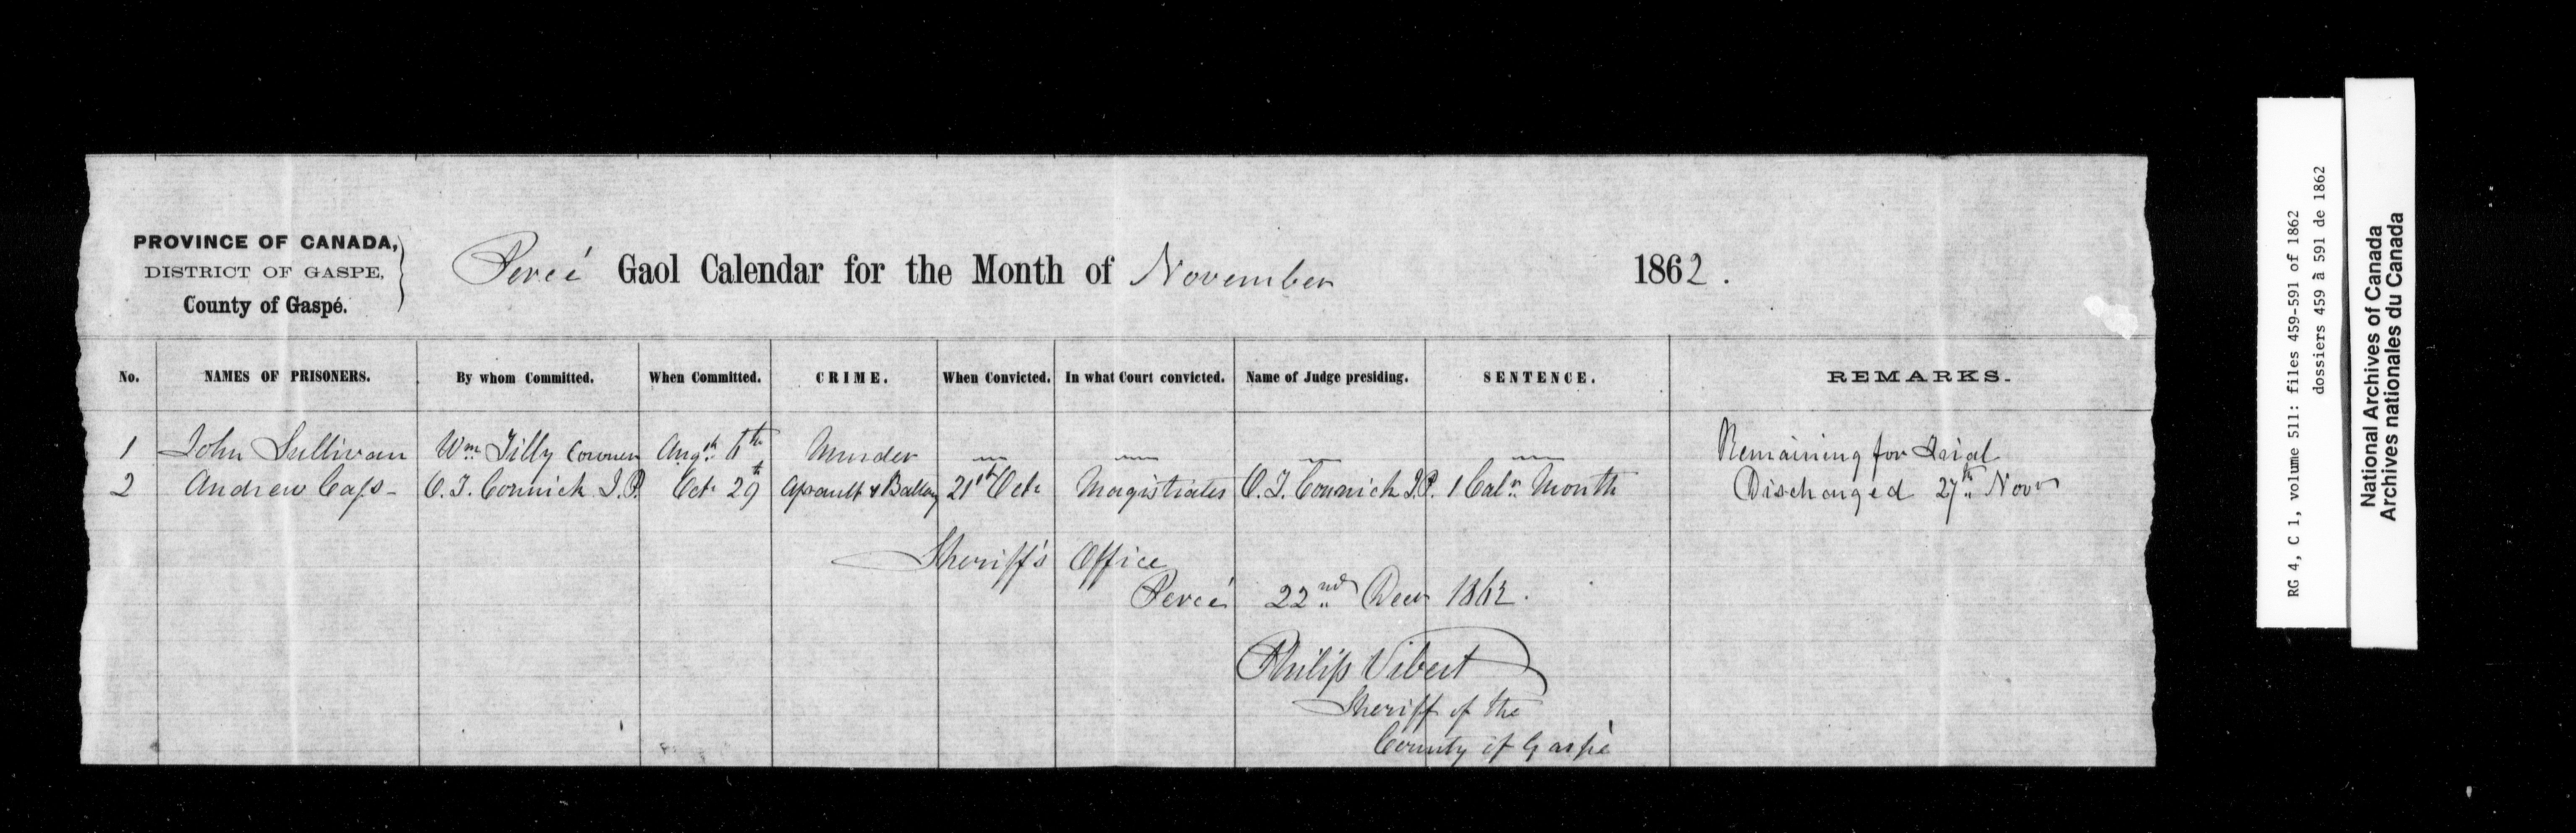 PROVINCE OF CANADA,
DISTRICT OF GASPE,
County of Gaspé.
Percé Gaol Calendar for the Month of November 1862.
No. NAMES OF PRISONERS. By whom Committed. When Committed. CRIME. When Convicted. In what Court convicted. Name of Judge presiding. SENTENCE. REMARKS.
1 John Sullivan Wm Tilly Coroner Augst 6th Murder — — — — Remaining for Trial
2 Andrew Cass - C. J. Connick J.P. Oct. 29th Assault & Battery 21st Oct. Magistrates C. J. Connick J.P. 1 Calr Month Discharged 27th Novr
Sheriff's Office
Percé 22nd Decr 1862.
Philip Vibert
Sheriff of the
County of Gaspé
RG 4, C 1, volume 511: files 459-591 of 1862
dossiers 459 à 591 de 1862
National Archives of Canada
Archives nationales du Canada